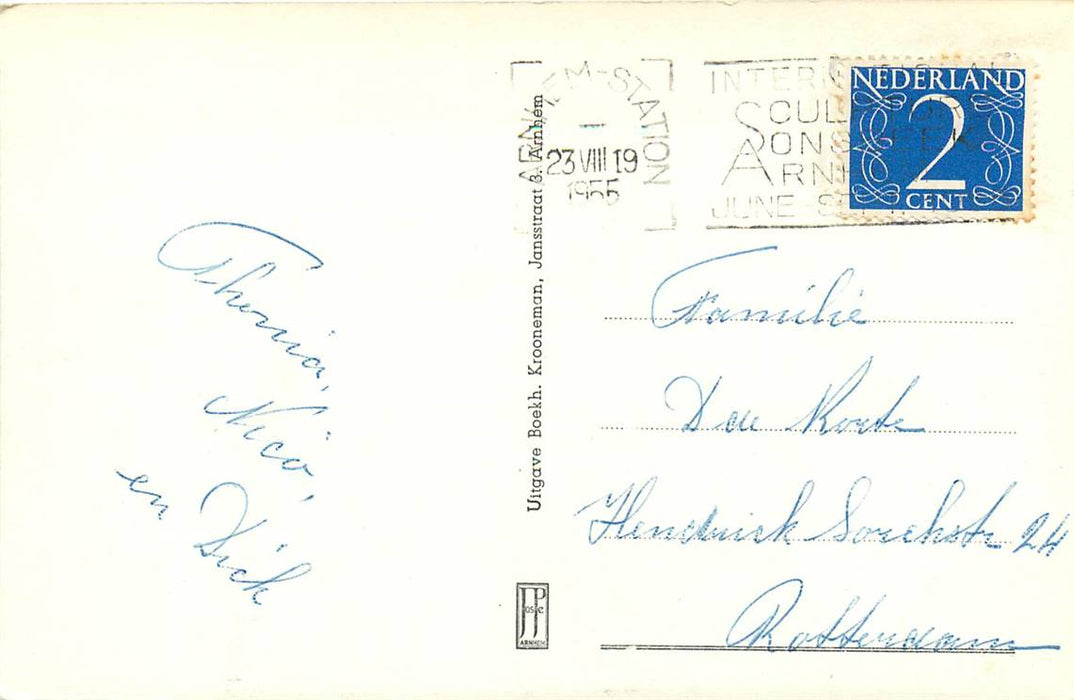 ARNHEM-STATION
23 VIII 19
1955
INTERN
SCUL
SONSBEEK
ARNHEM
JUNE - SEPT
NEDERLAND
2
CENT
Uitgave Boekh. Krooneman, Jansstraat 3. Arnhem
Thernia,
Nico,
en Dick
Familie
Den Korte
Hendrick Sorchstr 24
Rotterdam
JP
Josée
ARNHEM